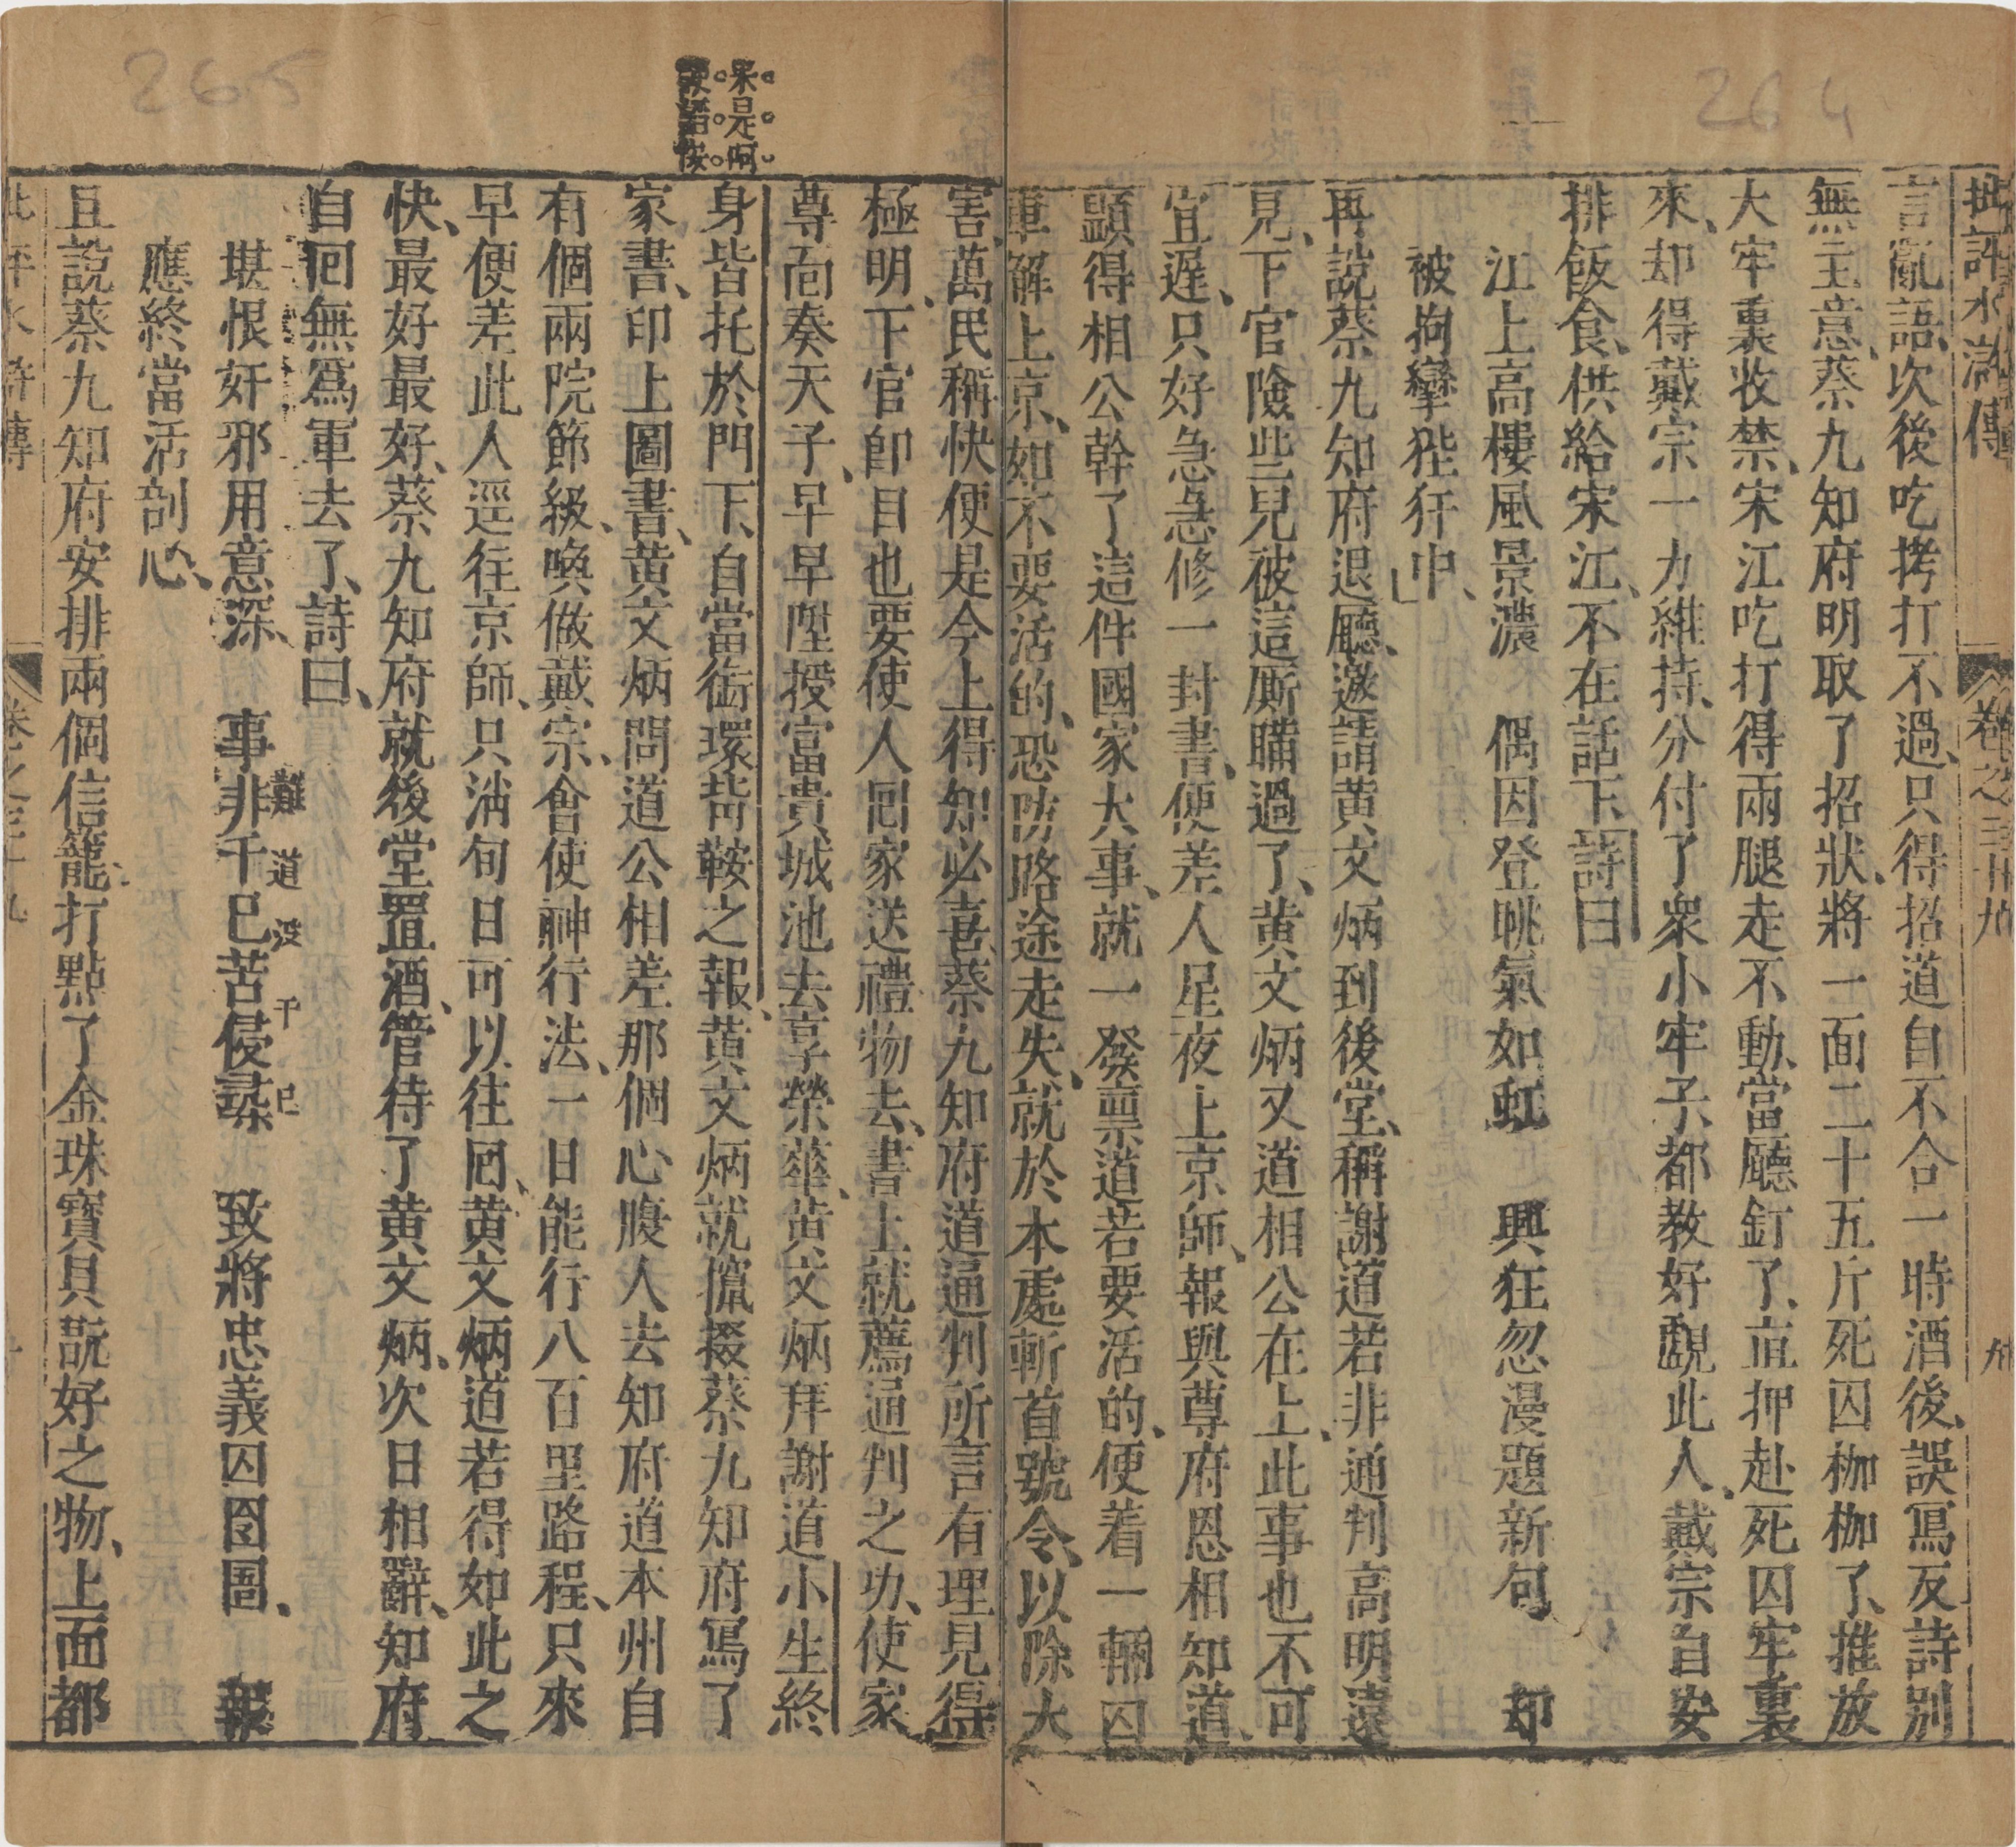 批評水滸傳 卷之三十九 九
言亂語、次後吃拷打不過、只得招道自不合一時酒後、誤寫反詩、別
無主意、蔡九知府明取了招狀、將一面二十五斤死囚枷枷了、推放
大牢裏收禁、宋江吃打得兩腿走不動、當廳釘了、直押赴死囚牢裏
來、却得戴宗一力維持、分付了衆小牢子、都教好覷此人、戴宗自安
排飯食、供給宋江、不在話下、詩曰
江上高樓風景濃 偶因登眺氣如虹 興狂忽漫題新句 却
被拘攣狴犴中、
再說蔡九知府退廳、邀請黃文炳到後堂、稱謝道若非通判高明遠
見、下官險些兒被這厮瞞過了、黃文炳又道相公在上、此事也不可
宜遲、只好急急修一封書、便差人星夜上京師、報與尊府恩相知道、
顯得相公幹了這件國家大事、就一發禀道若要活的、便着一輛囚
車解上京、如不要活的、恐防路途走失、就於本處斬首號令、以除大
害、萬民稱快、便是今上得知必喜、蔡九知府道通判所言有理、見得
極明、下官卽目也要使人囘家送禮物去、書上就薦通判之功、使家
尊面奏天子、早早陞授富貴城池、去享榮華、黃文炳拜謝道小生終
身皆托於門下、自當銜環背鞍之報、黃文炳就攛掇蔡九知府寫了
果是啊
家書、印上圖書、黃文炳問道公相差那個心腹人去、知府道本州自
有個兩院節級、喚做戴宗、會使神行法、一日能行八百里路程、只來
早便差此人逕往京師、只消旬日可以往囘、黃文炳道若得如此之
快、最好最好、蔡九知府就後堂置酒、管待了黃文炳、次日相辭、知府
自囘無爲軍去了、詩曰、
堪恨奸邪用意深、 事非干已苦侵尋 致將忠義囚囹圄、 報
難道没干已
應終當活剖心、
且說蔡九知府安排兩個信籠、打點了金珠寶貝翫好之物、上面都